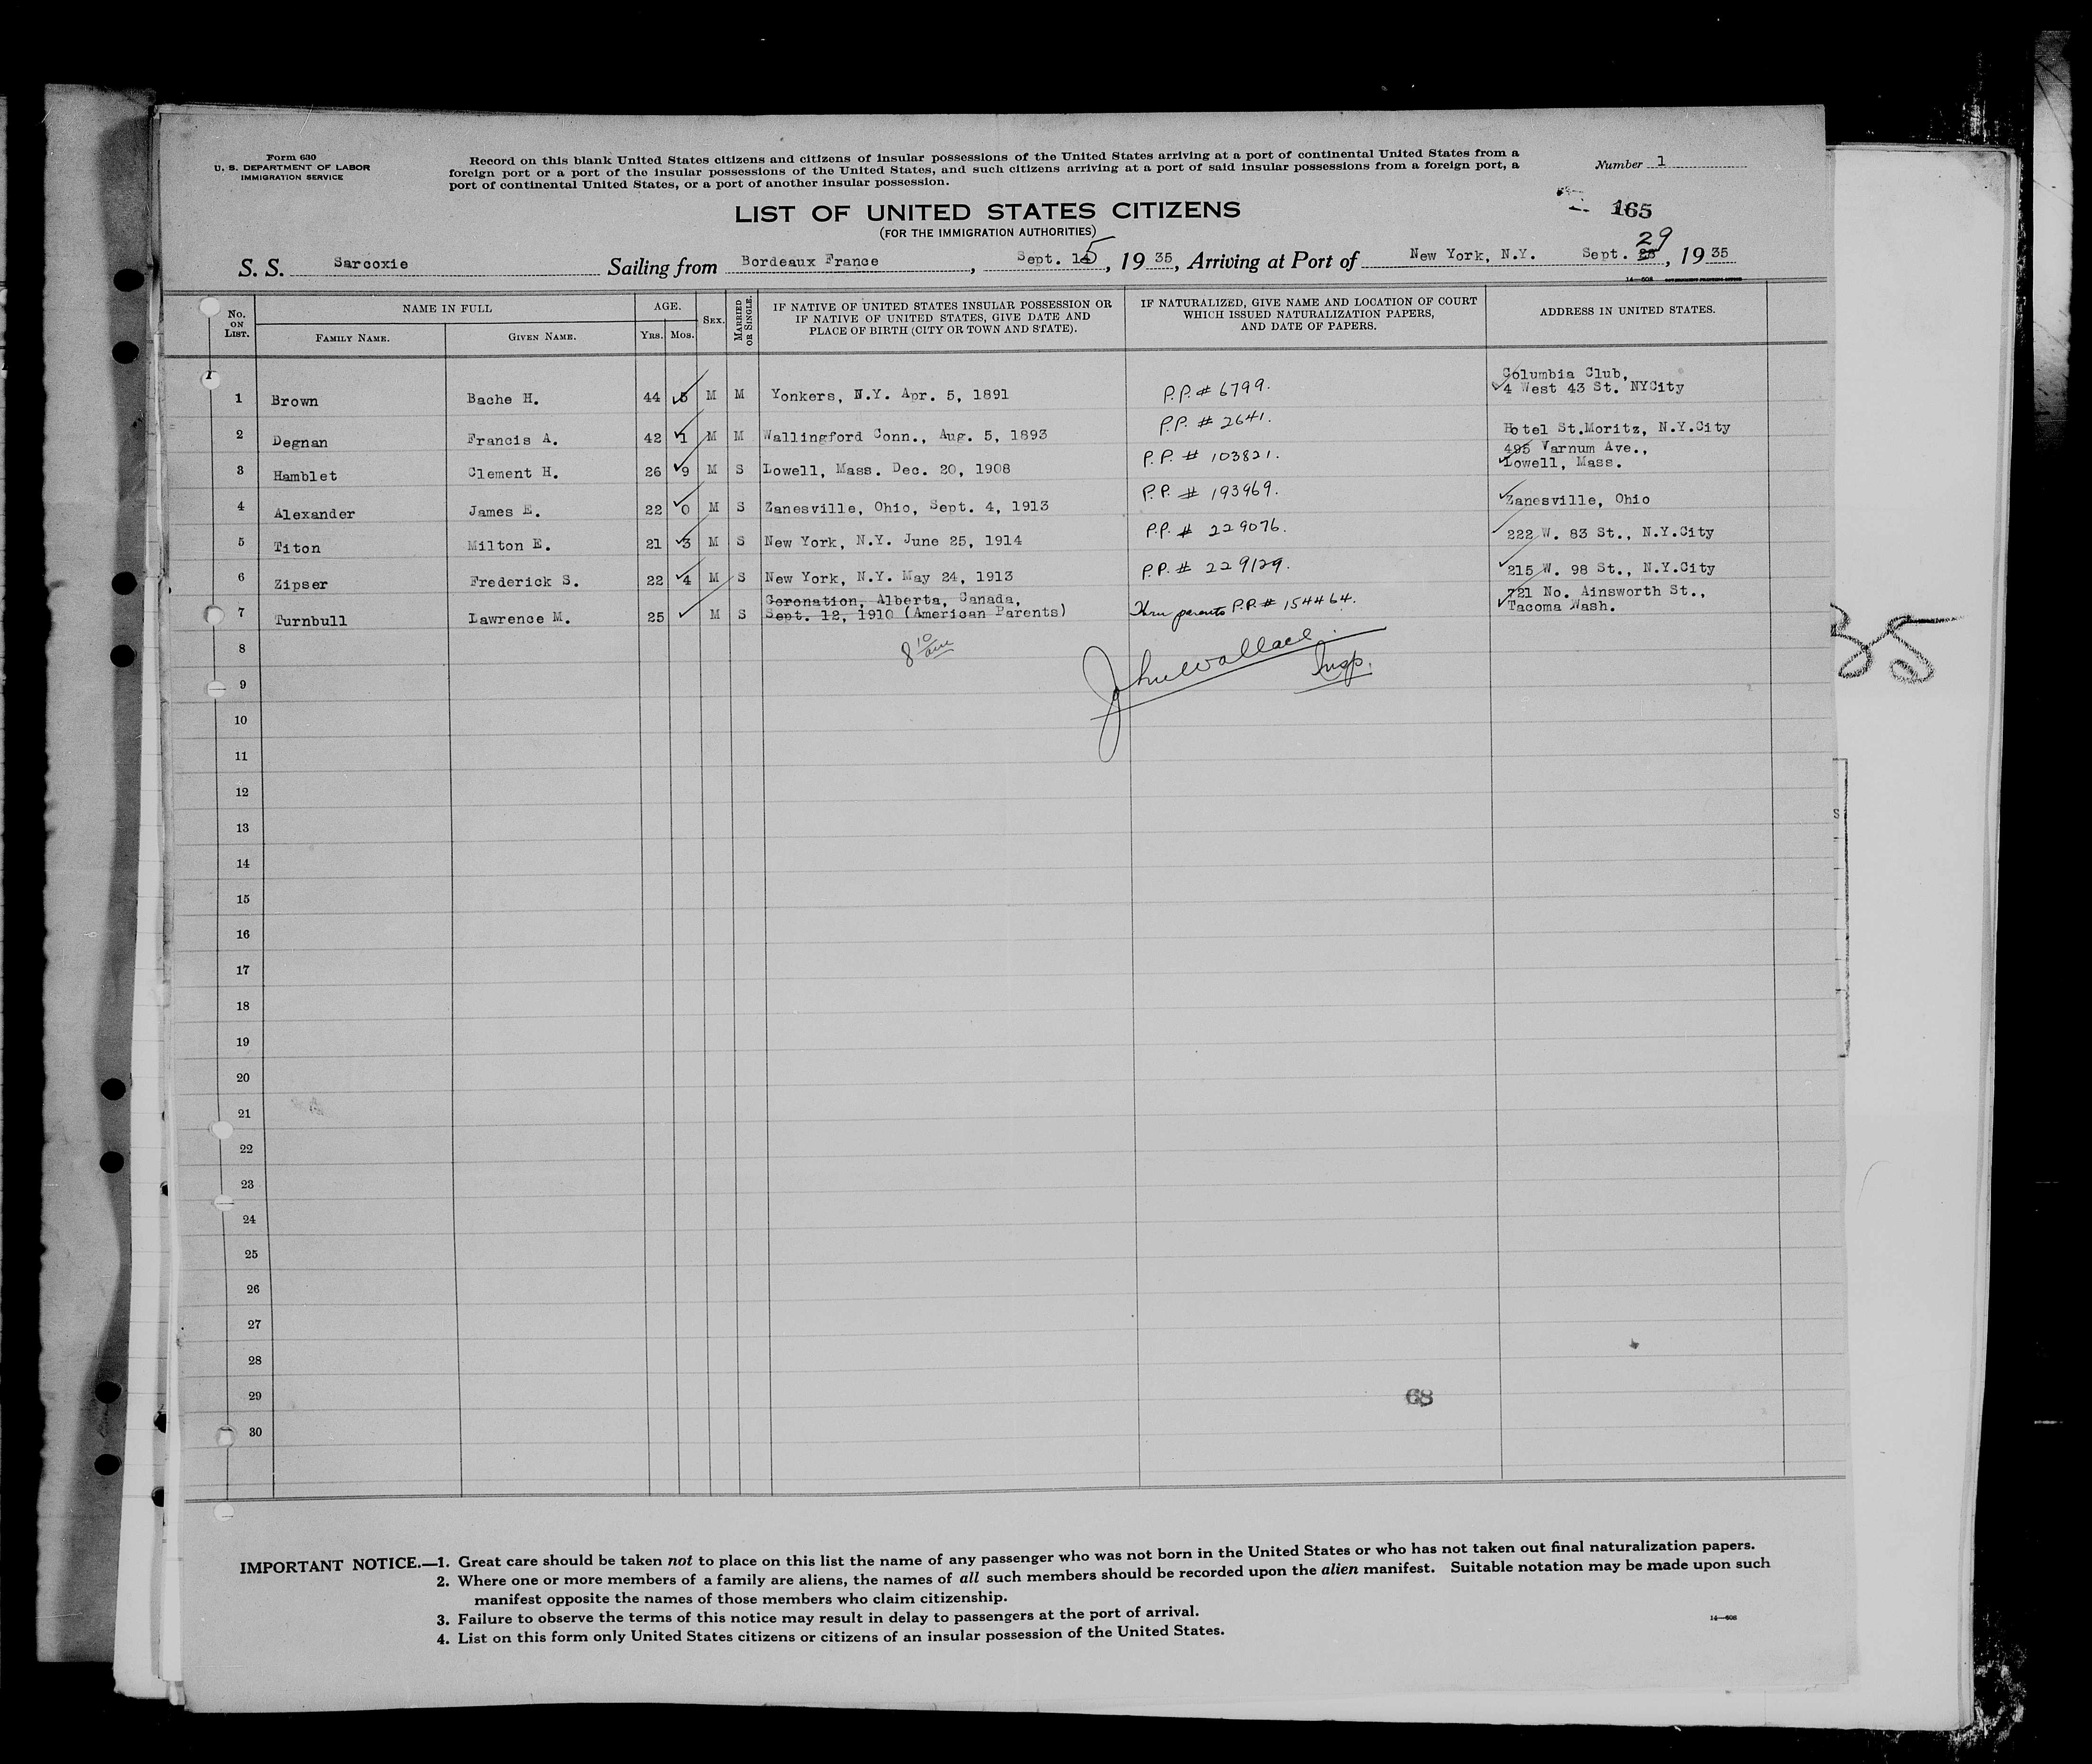 Form 630
U. S. DEPARTMENT OF LABOR
IMMIGRATION SERVICE
Record on this blank United States citizens and citizens of insular possessions of the United States arriving at a port of continental United States from a
foreign port or a port of the insular possessions of the United States, and such citizens arriving at a port of said insular possessions from a foreign port, a
port of continental United States, or a port of another insular possession.
Number 1
165
LIST OF UNITED STATES CITIZENS
(FOR THE IMMIGRATION AUTHORITIES)
S. S. Sarcoxie Sailing from Bordeaux France, Sept. 15, 19 35, Arriving at Port of New York, N.Y. Sept. 29, 19 35
No. ON LIST. NAME IN FULL FAMILY NAME. GIVEN NAME. AGE. YRS. MOS. SEX. MARRIED OR SINGLE. IF NATIVE OF UNITED STATES INSULAR POSSESSION OR IF NATIVE OF UNITED STATES, GIVE DATE AND PLACE OF BIRTH (CITY OR TOWN AND STATE). IF NATURALIZED, GIVE NAME AND LOCATION OF COURT WHICH ISSUED NATURALIZATION PAPERS, AND DATE OF PAPERS. ADDRESS IN UNITED STATES.
1 Brown Bache H. 44 5 M M Yonkers, N.Y. Apr. 5, 1891 P.P. # 6799. Columbia Club, 4 West 43 St. NYCity
2 Degnan Francis A. 42 1 M M Wallingford Conn., Aug. 5, 1893 P.P. # 2641. Hotel St.Moritz, N.Y.City
3 Hamblet Clement H. 26 9 M S Lowell, Mass. Dec. 20, 1908 P.P. # 103821. 495 Varnum Ave., Lowell, Mass.
4 Alexander James E. 22 0 M S Zanesville, Ohio, Sept. 4, 1913 P.P. # 193969. Zanesville, Ohio
5 Titon Milton E. 21 3 M S New York, N.Y. June 25, 1914 P.P. # 229076. 222 W. 83 St., N.Y.City
6 Zipser Frederick S. 22 4 M S New York, N.Y. May 24, 1913 P.P. # 229129. 215 W. 98 St., N.Y.City
7 Turnbull Lawrence M. 25 M S Coronation, Alberta, Canada, Sept. 12, 1910 (American Parents) Thru parents P.P. # 154464. 721 No. Ainsworth St., Tacoma Wash.
8 8 10 am
John Wallace Insp.
9
10
11
12
13
14
15
16
17
18
19
20
21
22
23
24
25
26
27
28
29 68
30
IMPORTANT NOTICE.—1. Great care should be taken not to place on this list the name of any passenger who was not born in the United States or who has not taken out final naturalization papers.
2. Where one or more members of a family are aliens, the names of all such members should be recorded upon the alien manifest. Suitable notation may be made upon such
manifest opposite the names of those members who claim citizenship.
3. Failure to observe the terms of this notice may result in delay to passengers at the port of arrival.
4. List on this form only United States citizens or citizens of an insular possession of the United States.
14—608